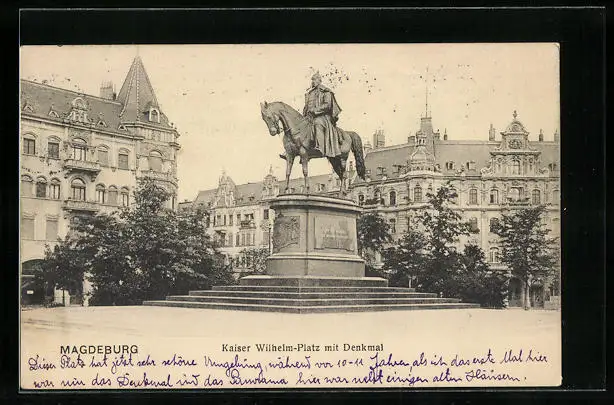 MAGDEBURG
Kaiser Wilhelm-Platz mit Denkmal
Dieser Platz hat jetzt sehr schöne Umgebung, während vor 10-11 Jahren, als ich das erste Mal hier
war nur das Denkmal und das Panorama hier war nebst einigen alten Häusern.